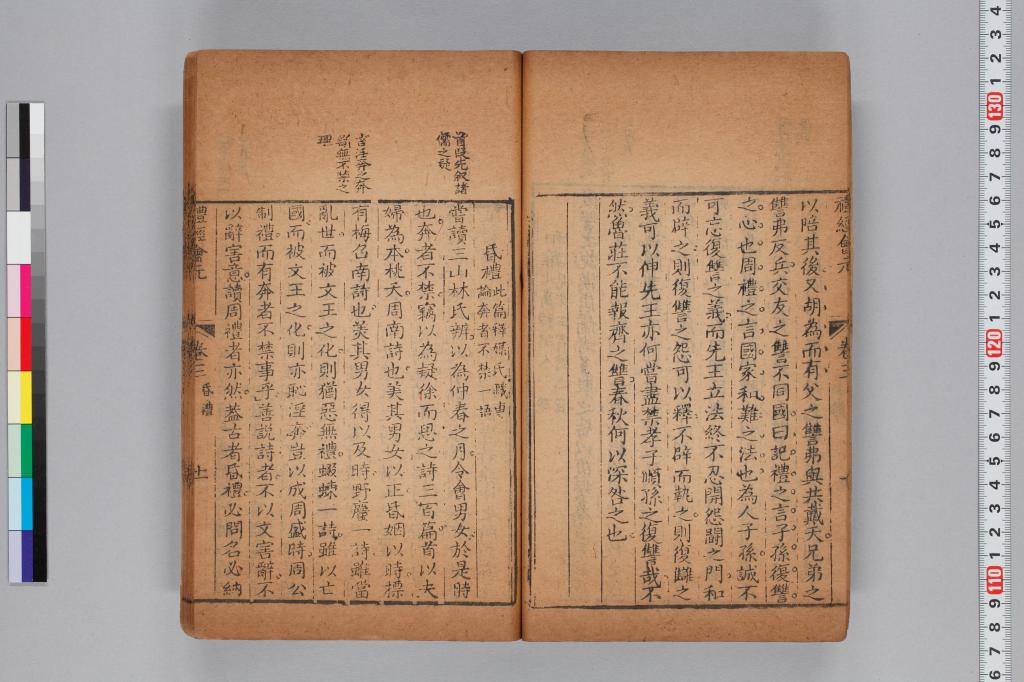 以陪其後又胡為而有父之讐弗與共戴天兄弟之
讐弗反兵交友之讐不同國曰記禮之言子孫復讐
之心也周禮之言國家和難之法也為人子孫誠不
可忘復讐之義而先王立法終不忍開怨鬬之門和
而辟之則復讐之怨可以釋不辟而執之則復讎之
義可以伸先王亦何嘗盡禁孝子順孫之復讐哉不
然魯莊不能報齊之讐春秋何以深咎之也
卷三
昏禮此篇釋媒氏職專
論奔者不禁一語
首段先叙諸
儒之疑
嘗讀三山林氏辨以為仲春之月令會男女於是時
也奔者不禁竊以為疑徐而思之詩三百篇首以夫
婦為本桃夭周南詩也美其男女以正昏姻以時摽
言淫奔之奔
斷無不禁之
理
有梅召南詩也美其男女得以及時野麕一詩雖當
亂世而被文王之化則猶惡無禮蝃蝀一詩雖以亡
國而被文王之化則亦恥淫奔豈以成周盛時周公
制禮而有奔者不禁事乎善說詩者不以文害辭不
以辭害意讀周禮者亦然蓋古者昏禮必問名必納
禮經會元
卷三
昏禮
十一